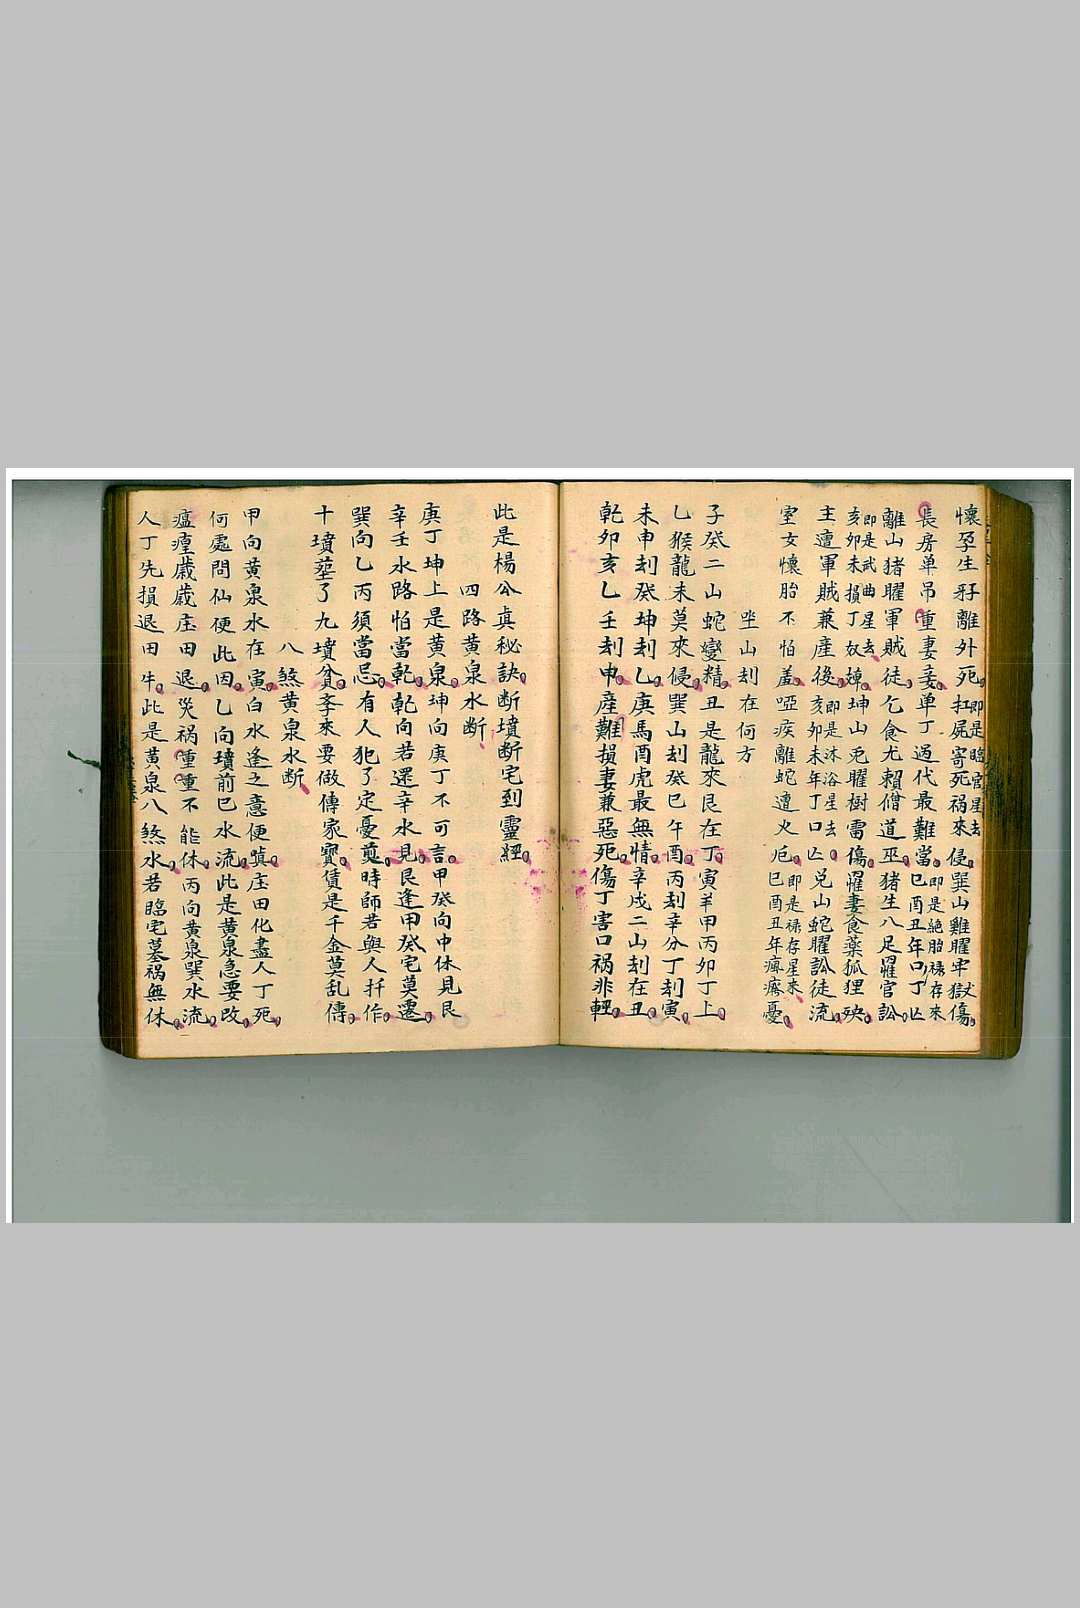 懷孕生孖離外死扛屍寄死禍來侵巽山雞曜牢獄傷
即是臨官星去
長房单吊重妻妾单丁過代最難當巳酉丑年口丁亡
即是絶胎禄存來
離山猪曜軍賊徒乞食尤賴僧道巫猪生八足犀官訟
亥卯未損丁奴婢坤山兎曜樹雷傷犀妻食藥狐狸殃
即是武曲星去
主遭軍賊兼產後亥卯未年丁口亡兌山蛇曜訟徒流
即是沐浴星去
室女懷胎不怕羞啞疾離蛇遭火厄巳酉丑年瘋癆憂
即是禄存星來
坐山刦在何方
子癸二山蛇變精丑是龍來艮在丁寅羊甲丙卯丁上
乙猴龍未莫來侵巽山刦癸巳午酉丙刦辛分丁刦寅
未申刦癸坤刦乙庚馬酉虎最無情辛戌二山刦在丑
乾卯亥乙壬刦申産難損妻兼惡死傷丁害口禍非輕
此是楊公真秘訣断墳断宅到靈經
四路黄泉水断
庚丁坤上是黄泉坤向庚丁不可言甲癸向中休見艮
辛壬水路怕當乾乾向若還辛水見艮逢甲癸宅莫遷
巽向乙丙須當忌有人犯了定憂煎時師若與人扦作
十墳塟了九墳貧李來要做傳家寶賃是千金莫乱傳
八煞黄泉水断
甲向黄泉水在寅白水逢之意便嗔庄田化盡人丁死
何處問仙便此因乙向墳前巳水流此是黄泉急要改
瘟㾮歲歲庄田退災禍重重不能休丙向黄泉巽水流
人丁先損退田牛此是黄泉八煞水若臨宅墓禍無休